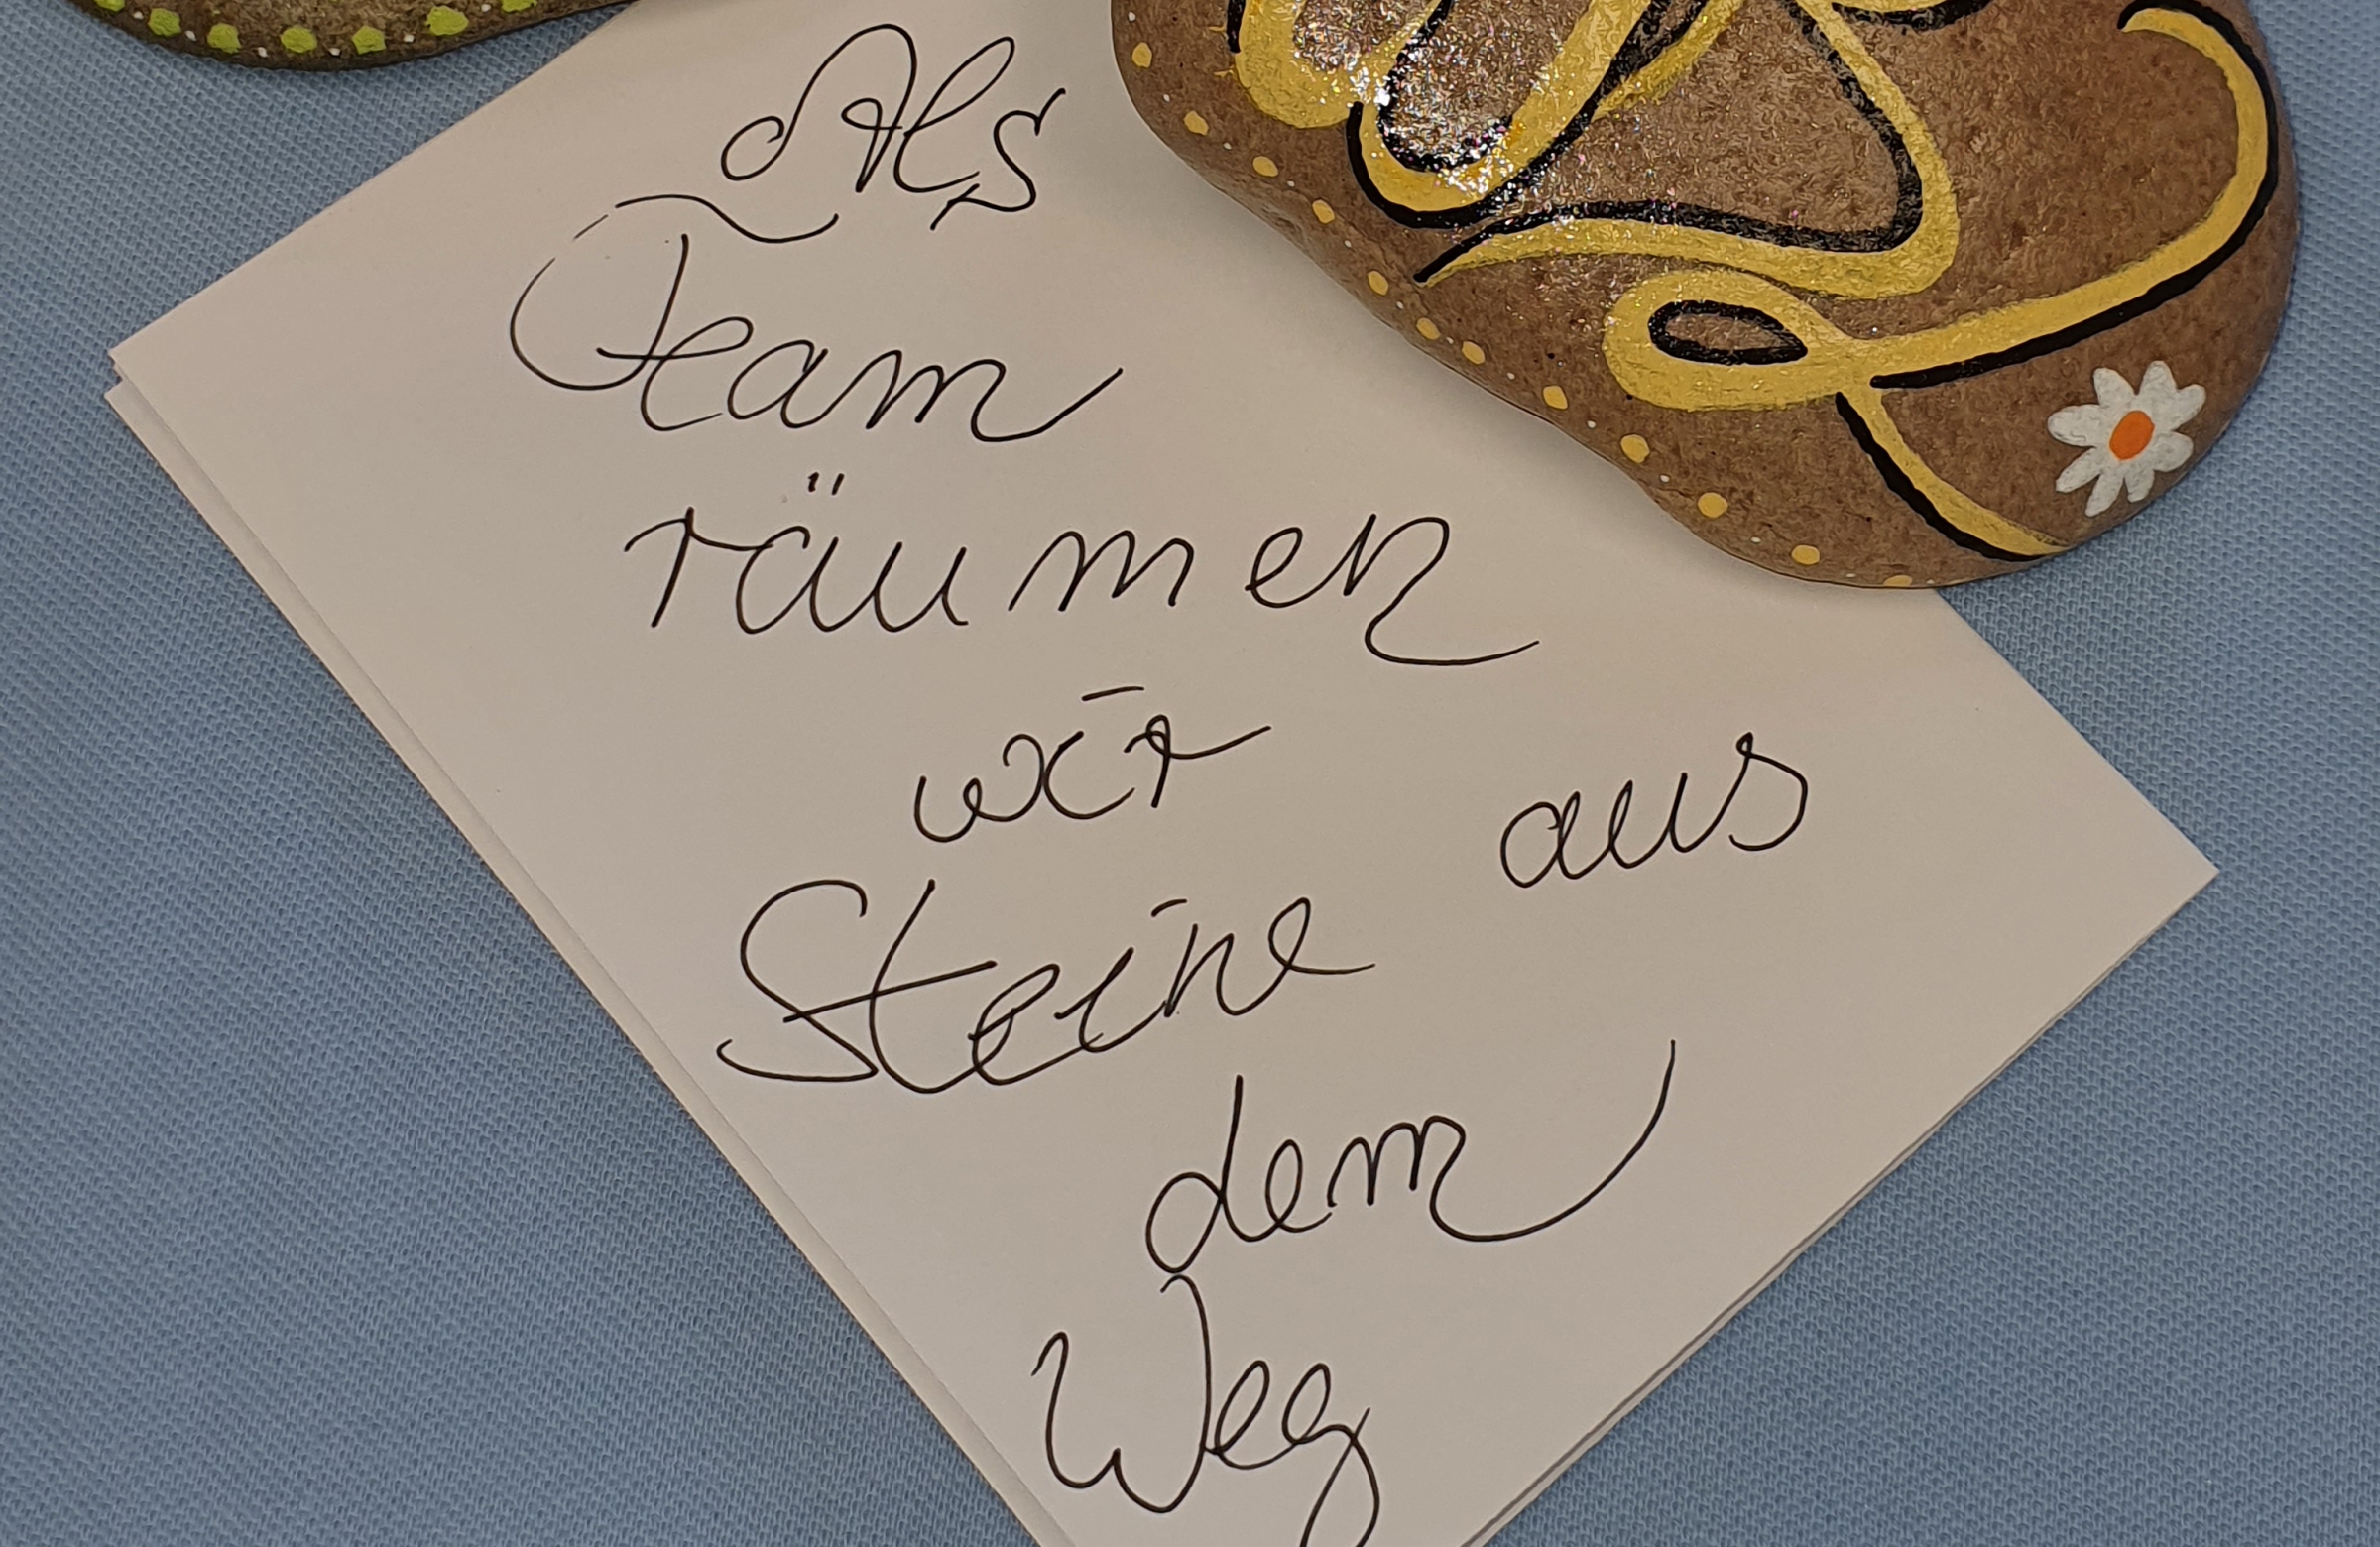 Als
Team
räumen
wir
Steine aus
dem
Weg